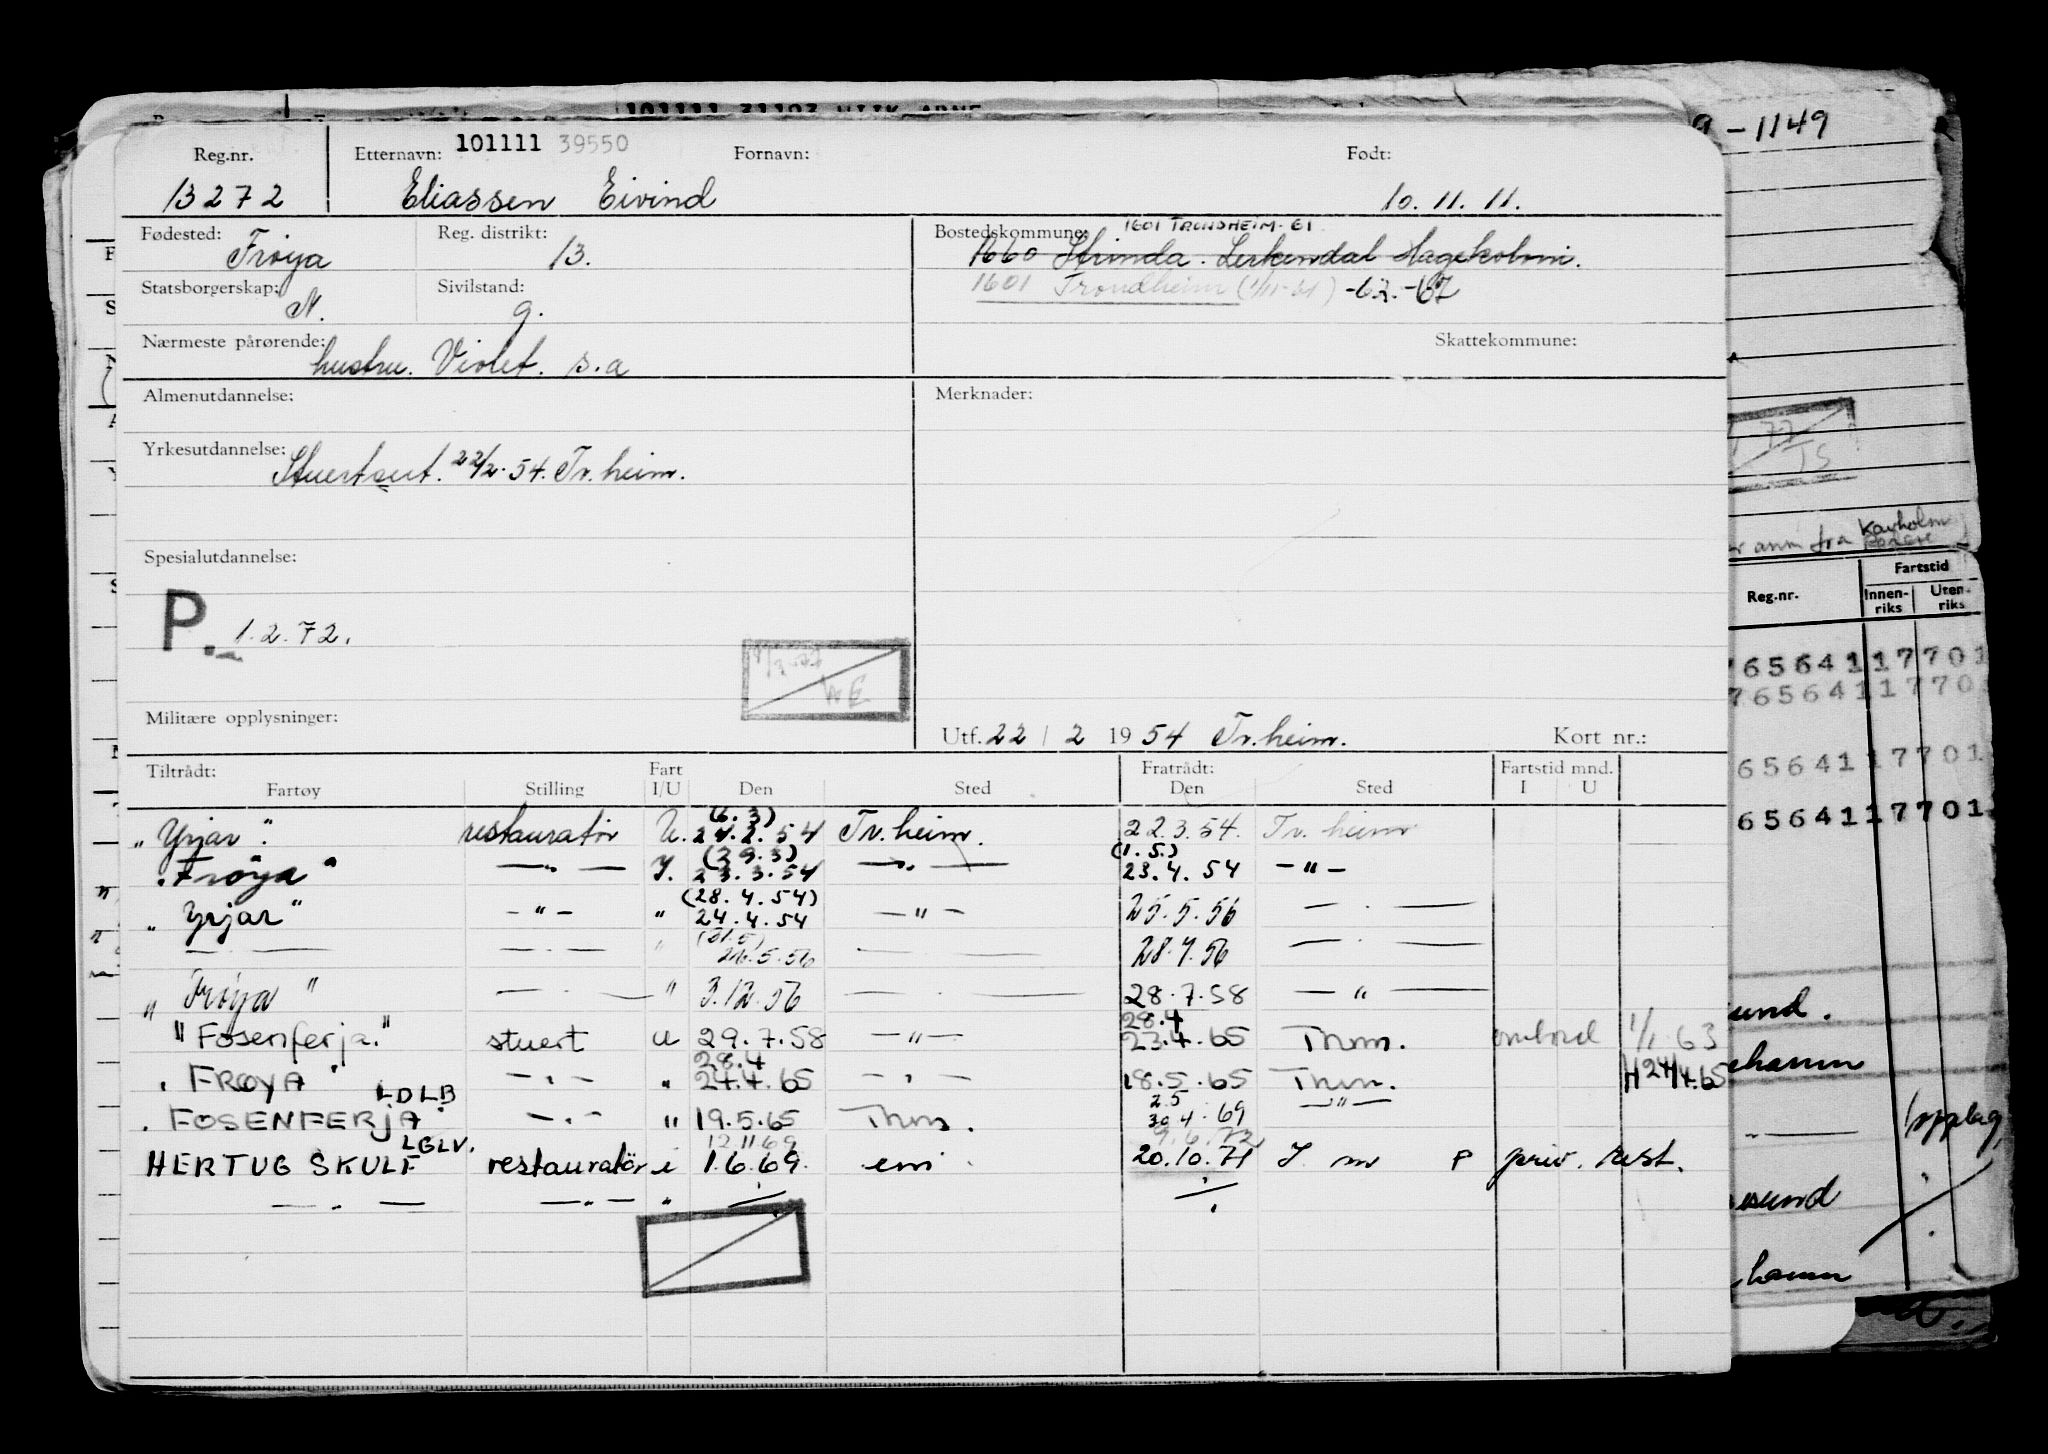 9 - 1149
Reg.nr. Etternavn: 101111 39550 Fornavn: Født:
13272 Eliassen Eivind 10.11.11.
Fødested: Reg. distrikt: Bostedskommune: 1601 TRONDHEIM-61
Frøya 13. 1660 Strinda. Lerkendal Hagekoloni.
Statsborgerskap: Sivilstand: 1601 Trondheim (1/11-61) -62.-67
N. g.
Nærmeste pårørende: Skattekommune:
hustru. Violet. s.a
Almenutdannelse: Merknader:
Yrkesutdannelse:
Stuertsert. 22/2.54. Tr.heim.
Spesialutdannelse:
P. 1.2.72.
Militære opplysninger:
Utf. 22 / 2 19 54 Tr.heim. Kort nr.:
Tiltrådt: Fart Fratrådt: Fartstid mnd.
Fartøy Stilling I/U Den Sted Den Sted I U
(6.3)
"Yrjar". restauratør U. 24.2.54 Tr.heim. 22.3.54. Tr.heim
(29.3) (1.5.)
"Frøya" — " — I. 23.3.54 — " — 23.4.54 — " —
(28.4.54)
"Yrjar" — " — " 24.4.54 — " — 25.5.56 — " —
(31.5)
— " — — " — " 26.5.56 — " — 28.7.56 — " —
"Frøya" — " — " 3.12.56 — " — 28.7.58 — " —
28.4
"Fosenferja." stuert u 29.7.58 — " — 23.4.65 Thm. ombord 1/1 63
28.4
"FRØYA" — " — " 24.4.65 — " — 18.5.65 Thm. H 24/4.65
LDLB 2.5
"FOSENFERJA — " — " 19.5.65 Thm. 30.4.69 — " —
LGLV. 12.11 69
HERTUG SKULE restauratør i 1.6.69. 20.10.71 P priv. rest.
— " — — " — "
77
TS
ann fra
Reg.nr. Fartstid
Innenriks Utenriks
6564117701
765641177 0
65641177 01
65641177 01
und.
hamn
opplag
esund
hamn